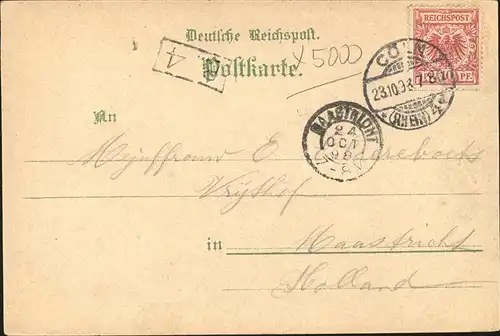 Deutsche Reichspost.
Postkarte.
X 5000
4
REICHSPOST
CÖLN
23.10.98
(RHEIN)
An
MAASTRICHT
24
OCT
98
Mejuffrouw E.
Vrijthof
in Maastricht
Holland